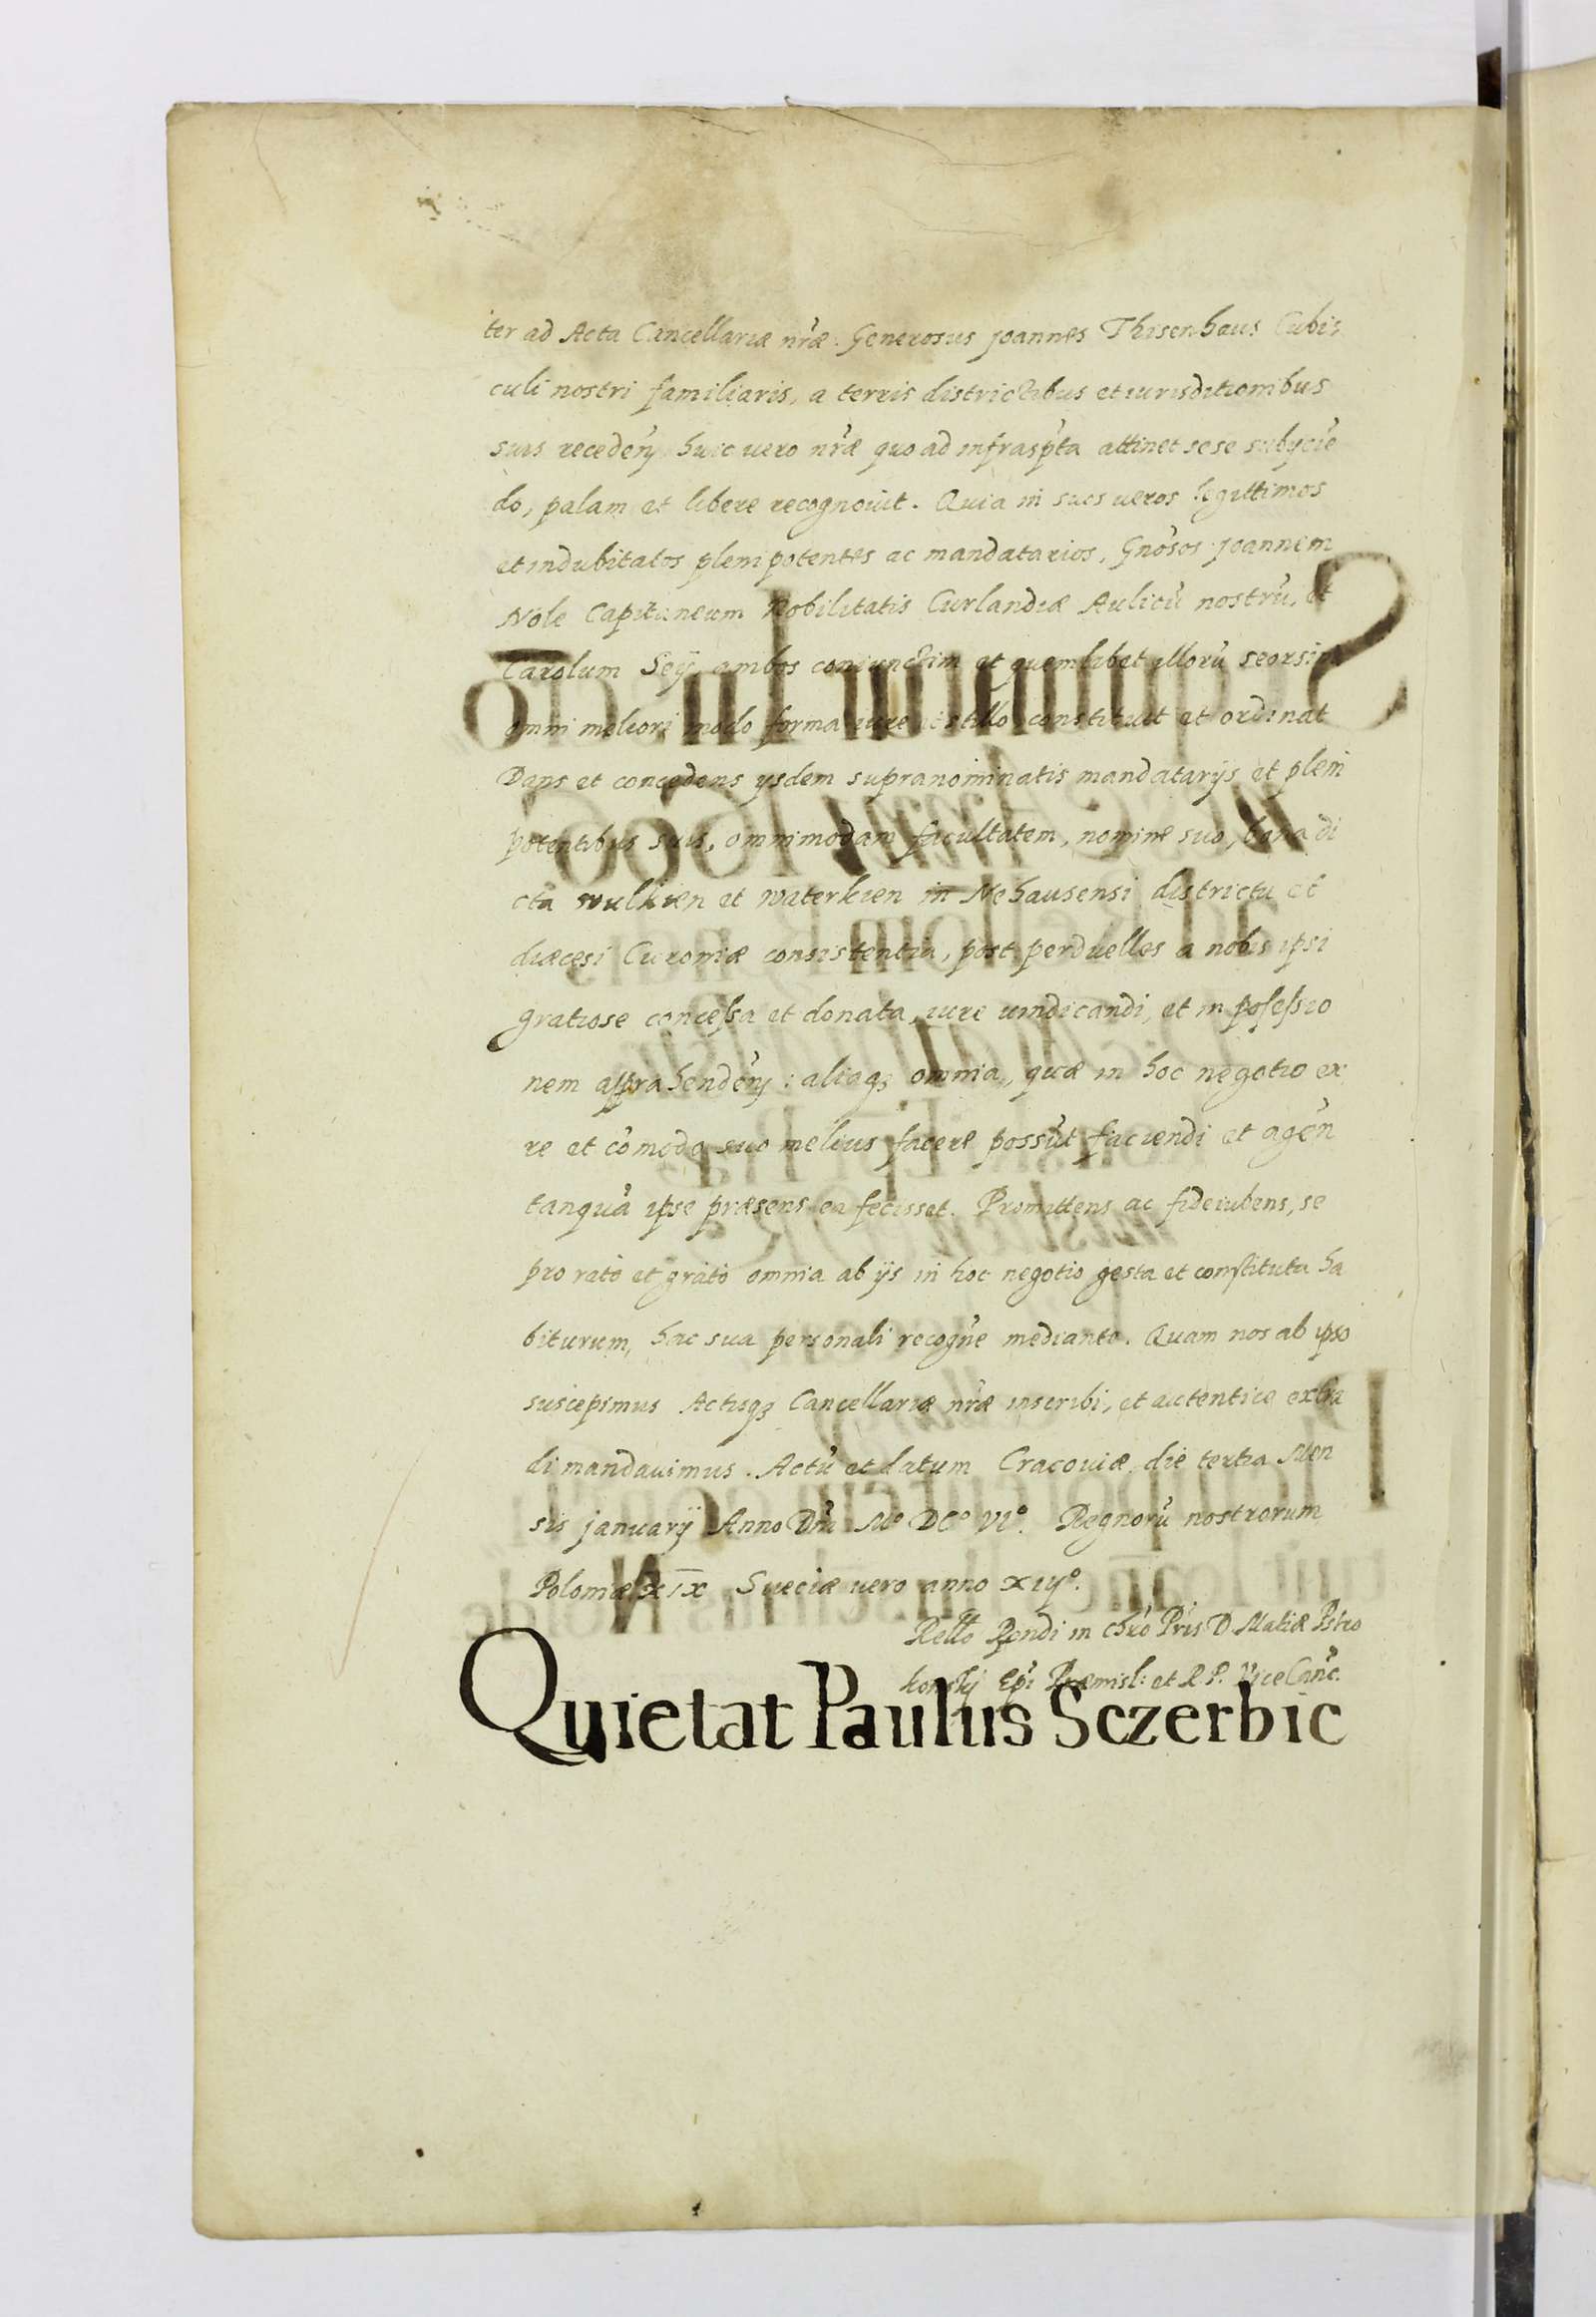 ter ad Acta Cancellariæ nr̃æ. Generosus Joannes Thisenhaus Cubi,
culi nostri familiaris, a terris districtibus et iurisditionibus
suis recedeñ huic uero nr̃æ quo ad infrasp̃ta attinet sese subijciẽ
do, palam et libere recognouit. Quia in suos ueros legittimos
et indubitatos plenipotentes ac mandatarios, Gnõsos Joannem
Nole Capitaneum Nobilitatis Curlandiæ Aulicũ nostrũ, et
Carolum Seÿ, ambos coniunctim et quemlibet illorũ seorsim
omni meliori modo forma iure et stillo constituit et ordinat
Dans et concedens ysdem supranominatis mandatarijs et pleni
potentibus suis, omnimodam facultatem, nomine suo, bona di
cta wulkien et waterkien in Nehausensi districtu et
diæcesi Curoniæ consistentia, post perduelles a nobis ipsi
gratiose concessa et donata, iure uindicandi, et in possessio
nem apprahendeñ: aliaqꝫ omnia, quæ in hoc negotio ex
re et cõmodo suo melius facere possũt faciendi et ageñ
tanquã ipse præsens ea fecisset. Promittens ac fideiubens, se
pro ratõ et gratõ omnia ab ijs in hoc negotio gesta et constituta ha
biturum, hac sua personali recogñe mediante. Quam nos ab ipso
suscepimus Actisqꝫ Cancellariæ nr̃æ inscribi, et autentice extra
di mandauimus. Actũ et datum Cracouiæ die tertia Men
sis januarij Anno Dnĩ Mº DCº VIº. Regnorũ nostrorum
Poloniæ XIX Sueciæ uero anno XIIJº.
Rellõ Rẽndi in Chrõ Pr̃is D Matiæ Pstro
konskij Epĩ Præmisl: et R P. ViceCanc̃.
Quietat Paulus Sczerbic